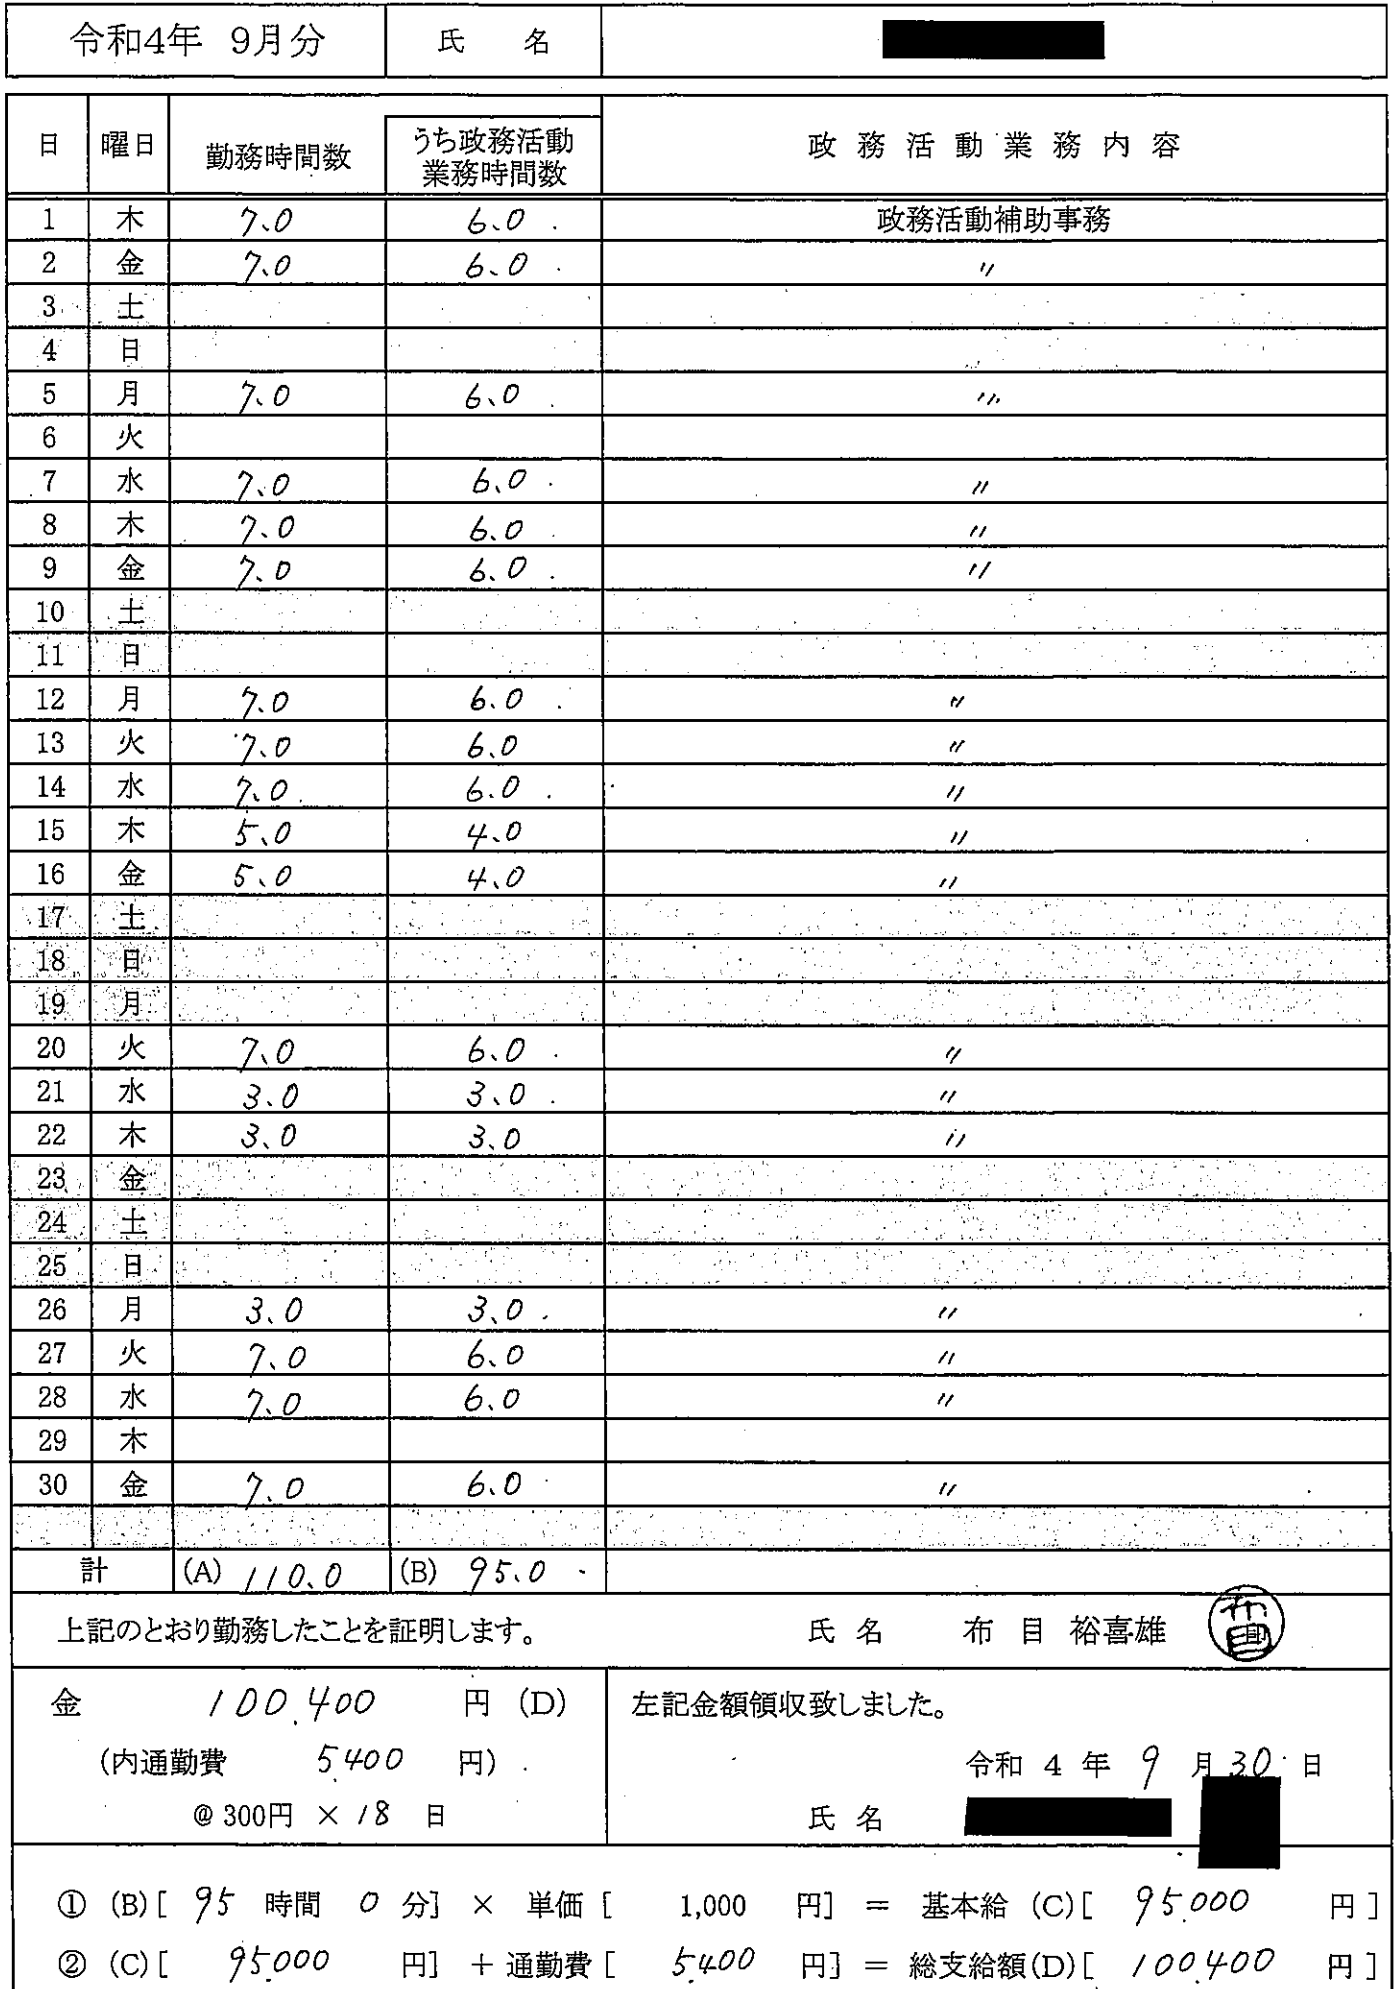 令和4年 9月分 氏 名
日 曜日 勤務時間数 うち政務活動業務時間数 政務活動業務内容
1 木 7.0 6.0 政務活動補助事務
2 金 7.0 6.0 〃
3 土
4 日
5 月 7.0 6.0 〃
6 火
7 水 7.0 6.0 〃
8 木 7.0 6.0 〃
9 金 7.0 6.0 〃
10 土
11 日
12 月 7.0 6.0 〃
13 火 7.0 6.0 〃
14 水 7.0 6.0 〃
15 木 5.0 4.0 〃
16 金 5.0 4.0 〃
17 土
18 日
19 月
20 火 7.0 6.0 〃
21 水 3.0 3.0 〃
22 木 3.0 3.0 〃
23 金
24 土
25 日
26 月 3.0 3.0 〃
27 火 7.0 6.0 〃
28 水 7.0 6.0 〃
29 木
30 金 7.0 6.0 〃
計 (A) 110.0 (B) 95.0
上記のとおり勤務したことを証明します。 氏 名 布 目 裕喜雄 布目 印
金 100,400 円 (D) 左記金額領収致しました。
(内通勤費 5,400 円) 令和 4 年 9 月 30 日
@ 300円 × 18 日 氏 名
① (B)[ 95 時間 0 分] × 単価 [ 1,000 円] = 基本給 (C)[ 95,000 円 ]
② (C)[ 95,000 円] + 通勤費 [ 5,400 円] = 総支給額(D)[ 100,400 円 ]